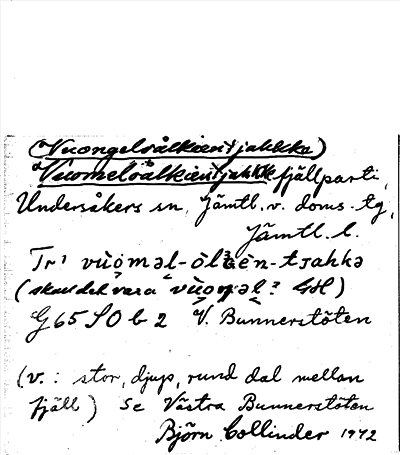 (Vuongelsålkientjahkka)
Vuomelsålkientjahkk fjällparti,
Undersåkers sn, Jämtl. v. doms.-tg,
Jämtl. l.
Tr. vùo̬məl-òlkèn-tsahkə
(skall det vara vùoŋəl? GH)
G65SO b 2 V. Bunnerstöten
(v.: stor, djup, rund dal mellan
fjäll) Se Västra Bunnerstöten
Björn Collinder 1942